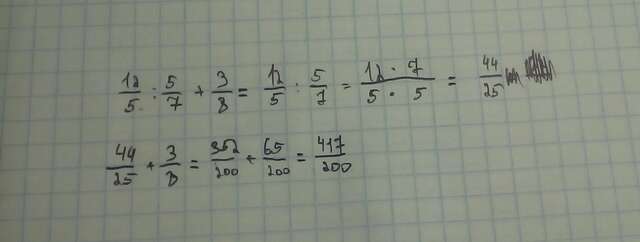 12/5 : 5/7 + 3/8 = 12/5 : 5/7 = 12 · 7 / 5 · 5 = 44/25
44/25 + 3/8 = 352/200 + 65/200 = 417/200